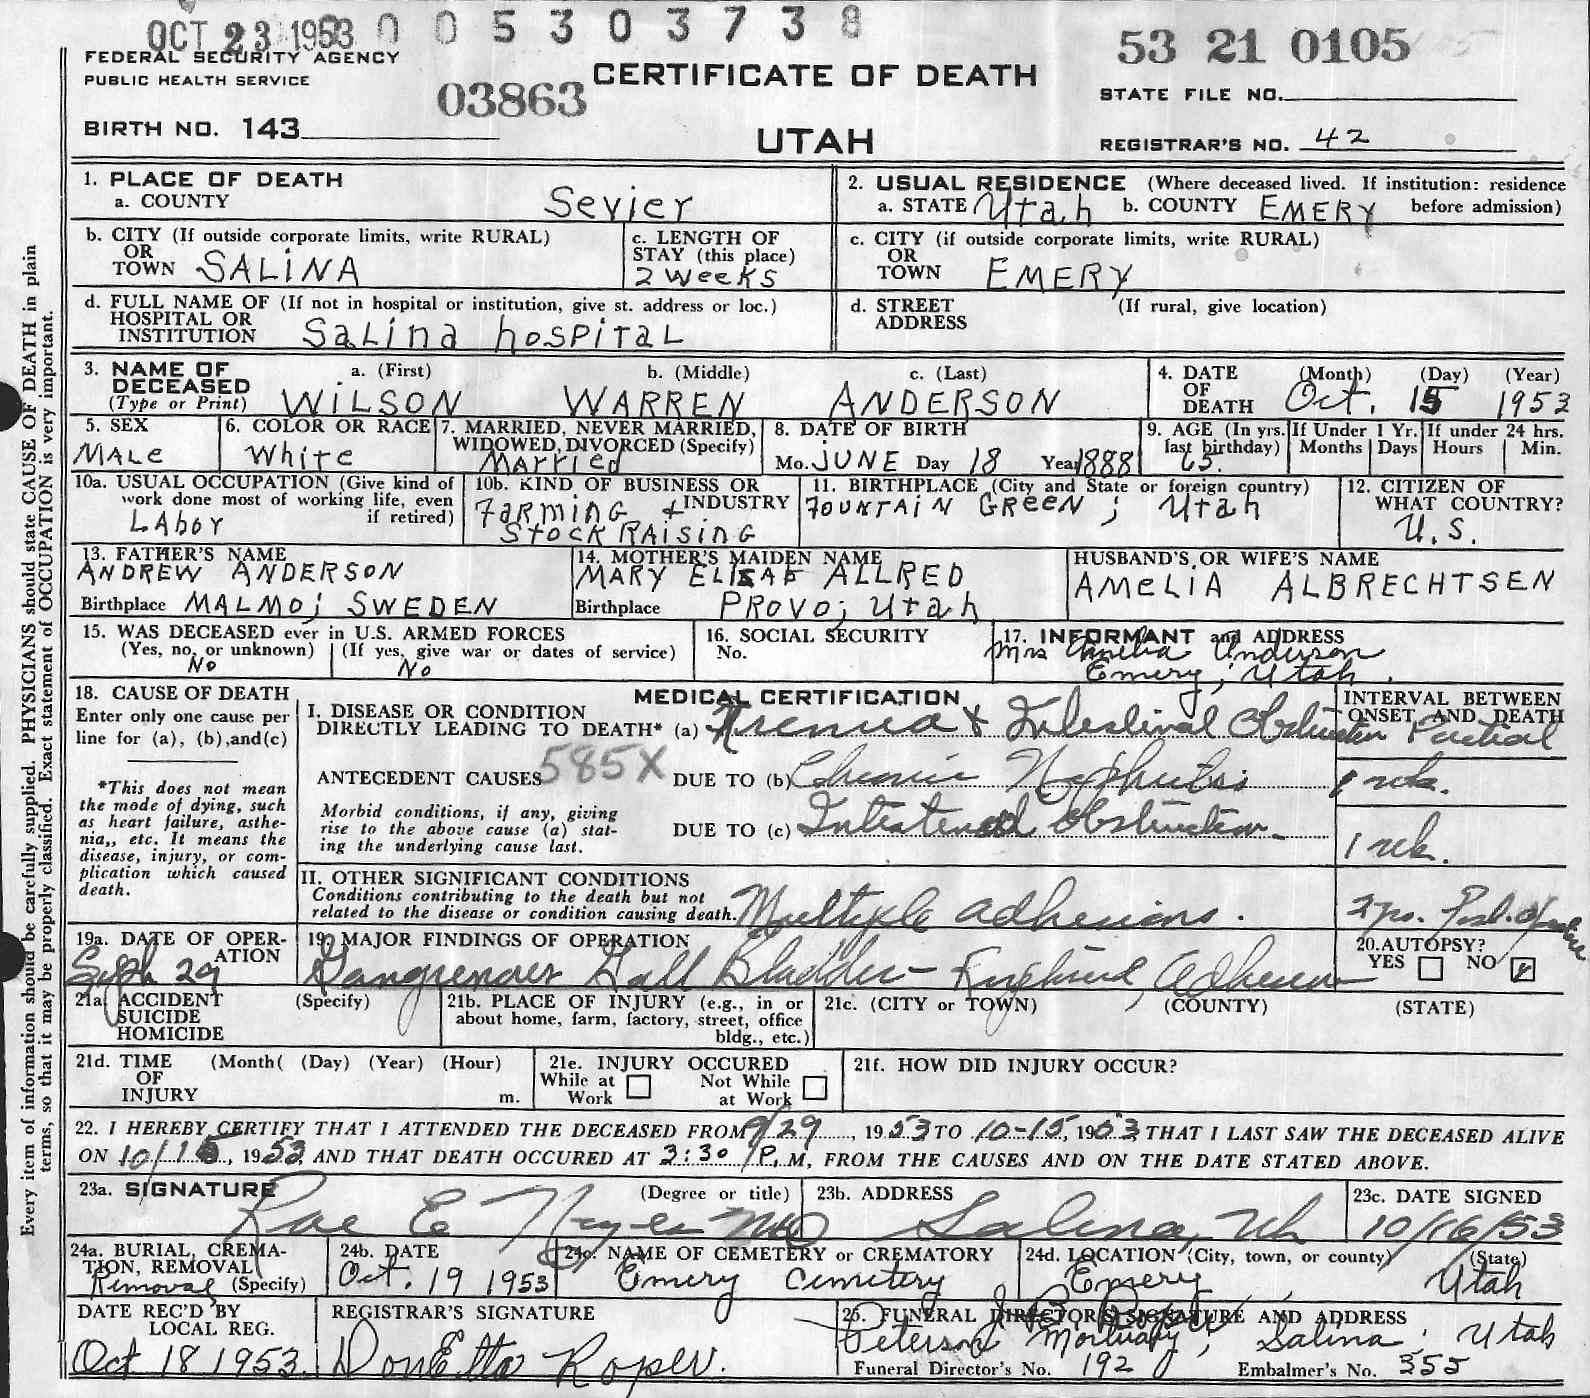 OCT 23 1953 0 0 5 3 0 3 7 3 8
53 21 0105
FEDERAL SECURITY AGENCY
PUBLIC HEALTH SERVICE
03863
CERTIFICATE OF DEATH
STATE FILE NO.
BIRTH NO. 143
UTAH
REGISTRAR'S NO. 42
1. PLACE OF DEATH
a. COUNTY Sevier
2. USUAL RESIDENCE (Where deceased lived. If institution: residence
a. STATE Utah b. COUNTY EMERY before admission)
b. CITY (If outside corporate limits, write RURAL)
OR
TOWN SALINA
c. LENGTH OF
STAY (this place)
2 Weeks
c. CITY (if outside corporate limits, write RURAL)
OR
TOWN EMERY
d. FULL NAME OF (If not in hospital or institution, give st. address or loc.)
HOSPITAL OR
INSTITUTION Salina hospital
d. STREET (If rural, give location)
ADDRESS
3. NAME OF a. (First) b. (Middle) c. (Last)
DECEASED
(Type or Print) WILSON WARREN ANDERSON
4. DATE (Month) (Day) (Year)
OF
DEATH Oct. 15 1953
5. SEX
MALE
6. COLOR OR RACE
White
7. MARRIED, NEVER MARRIED,
WIDOWED, DIVORCED (Specify)
Married
8. DATE OF BIRTH
Mo. JUNE Day 18 Year 1888
9. AGE (In yrs. last birthday) 65.
If Under 1 Yr. Months Days
If under 24 hrs. Hours Min.
10a. USUAL OCCUPATION (Give kind of
work done most of working life, even
if retired)
LABOR
10b. KIND OF BUSINESS OR
INDUSTRY
FARMING &
STOCK RAISING
11. BIRTHPLACE (City and State or foreign country)
FOUNTAIN GREEN; Utah
12. CITIZEN OF
WHAT COUNTRY?
U.S.
13. FATHER'S NAME
ANDREW ANDERSON
Birthplace MALMO; SWEDEN
14. MOTHER'S MAIDEN NAME
MARY ALLRED
Birthplace PROVO; Utah
HUSBAND'S OR WIFE'S NAME
AMELIA ALBRECHTSEN
15. WAS DECEASED ever in U.S. ARMED FORCES
(Yes, no, or unknown) (If yes, give war or dates of service)
No No
16. SOCIAL SECURITY
No.
17. INFORMANT and ADDRESS
Mrs Amelia Anderson
Emery, Utah.
18. CAUSE OF DEATH
Enter only one cause per
line for (a), (b), and(c)
*This does not mean
the mode of dying, such
as heart failure, asthe-
nia,, etc. It means the
disease, injury, or com-
plication which caused
death.
MEDICAL CERTIFICATION
INTERVAL BETWEEN
ONSET AND DEATH
I. DISEASE OR CONDITION
DIRECTLY LEADING TO DEATH* (a) Uremia & Intestinal Obstruction Partial
ANTECEDENT CAUSES 585X DUE TO (b) Chronic Nephritis 1 wk.
Morbid conditions, if any, giving
rise to the above cause (a) stat-
ing the underlying cause last.
DUE TO (c) Intestinal obstruction 1 wk.
II. OTHER SIGNIFICANT CONDITIONS
Conditions contributing to the death but not
related to the disease or condition causing death.
Multiple adhesions.
19a. DATE OF OPER-
ATION
Sept 29
19. MAJOR FINDINGS OF OPERATION
Gangrenous Gall Bladder - Ruptured, Adhesions
20. AUTOPSY?
YES NO
21a. ACCIDENT (Specify)
SUICIDE
HOMICIDE
21b. PLACE OF INJURY (e.g., in or
about home, farm, factory, street, office
bldg., etc.)
21c. (CITY or TOWN) (COUNTY) (STATE)
21d. TIME (Month( (Day) (Year) (Hour)
OF
INJURY m.
21e. INJURY OCCURED
While at Work Not While at Work
21f. HOW DID INJURY OCCUR?
22. I HEREBY CERTIFY THAT I ATTENDED THE DECEASED FROM 9/29, 1953 TO 10-15, 1953, THAT I LAST SAW THE DECEASED ALIVE
ON 10/15, 1953, AND THAT DEATH OCCURED AT 3:30 P. M, FROM THE CAUSES AND ON THE DATE STATED ABOVE.
23a. SIGNATURE (Degree or title)
Rae E Noyes MD
23b. ADDRESS
Salina, Ut
23c. DATE SIGNED
10/16/53
24a. BURIAL, CREMA-
TION, REMOVAL
Removal (Specify)
24b. DATE
Oct. 19 1953
24c. NAME OF CEMETERY or CREMATORY
Emery Cemetery
24d. LOCATION (City, town, or county) (State)
Emery, Utah
DATE REC'D BY
LOCAL REG.
Oct 18 1953.
REGISTRAR'S SIGNATURE
DonEtta Roper.
25. FUNERAL DIRECTOR'S SIGNATURE AND ADDRESS
Peterson Mortuary, Salina, Utah
Funeral Director's No. 192 Embalmer's No. 355
Every item of information should be carefully supplied. PHYSICIANS should state CAUSE OF DEATH in plain
terms, so that it may be properly classified. Exact statement of OCCUPATION is very important.